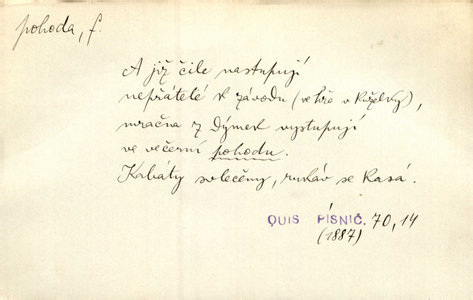 pohoda, f.
A již čile nastupují
nepřátelé k závodu (ve hře v kuželky),
mračna z dýmek vystupují
ve večerní pohodu.
Kabáty svlečeny, rukáv se kasá.
QUIS PÍSNIČ. 70, 14
(1887)